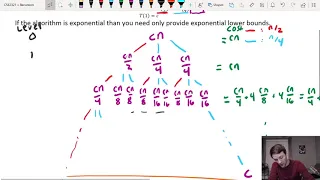 T(1) = c
If the algorithm is exponential than you need only provide exponential lower bounds.
Level
0 cn cost n/2
= cn n/4
1 cn/2 cn/4 cn/4 = cn
cn/4 cn/8 cn/8 cn/8 cn/16 cn/16 cn/8 cn/16 cn/16 = cn/4 + 4 cn/8 + 4 cn/16 = cn/4 +
c